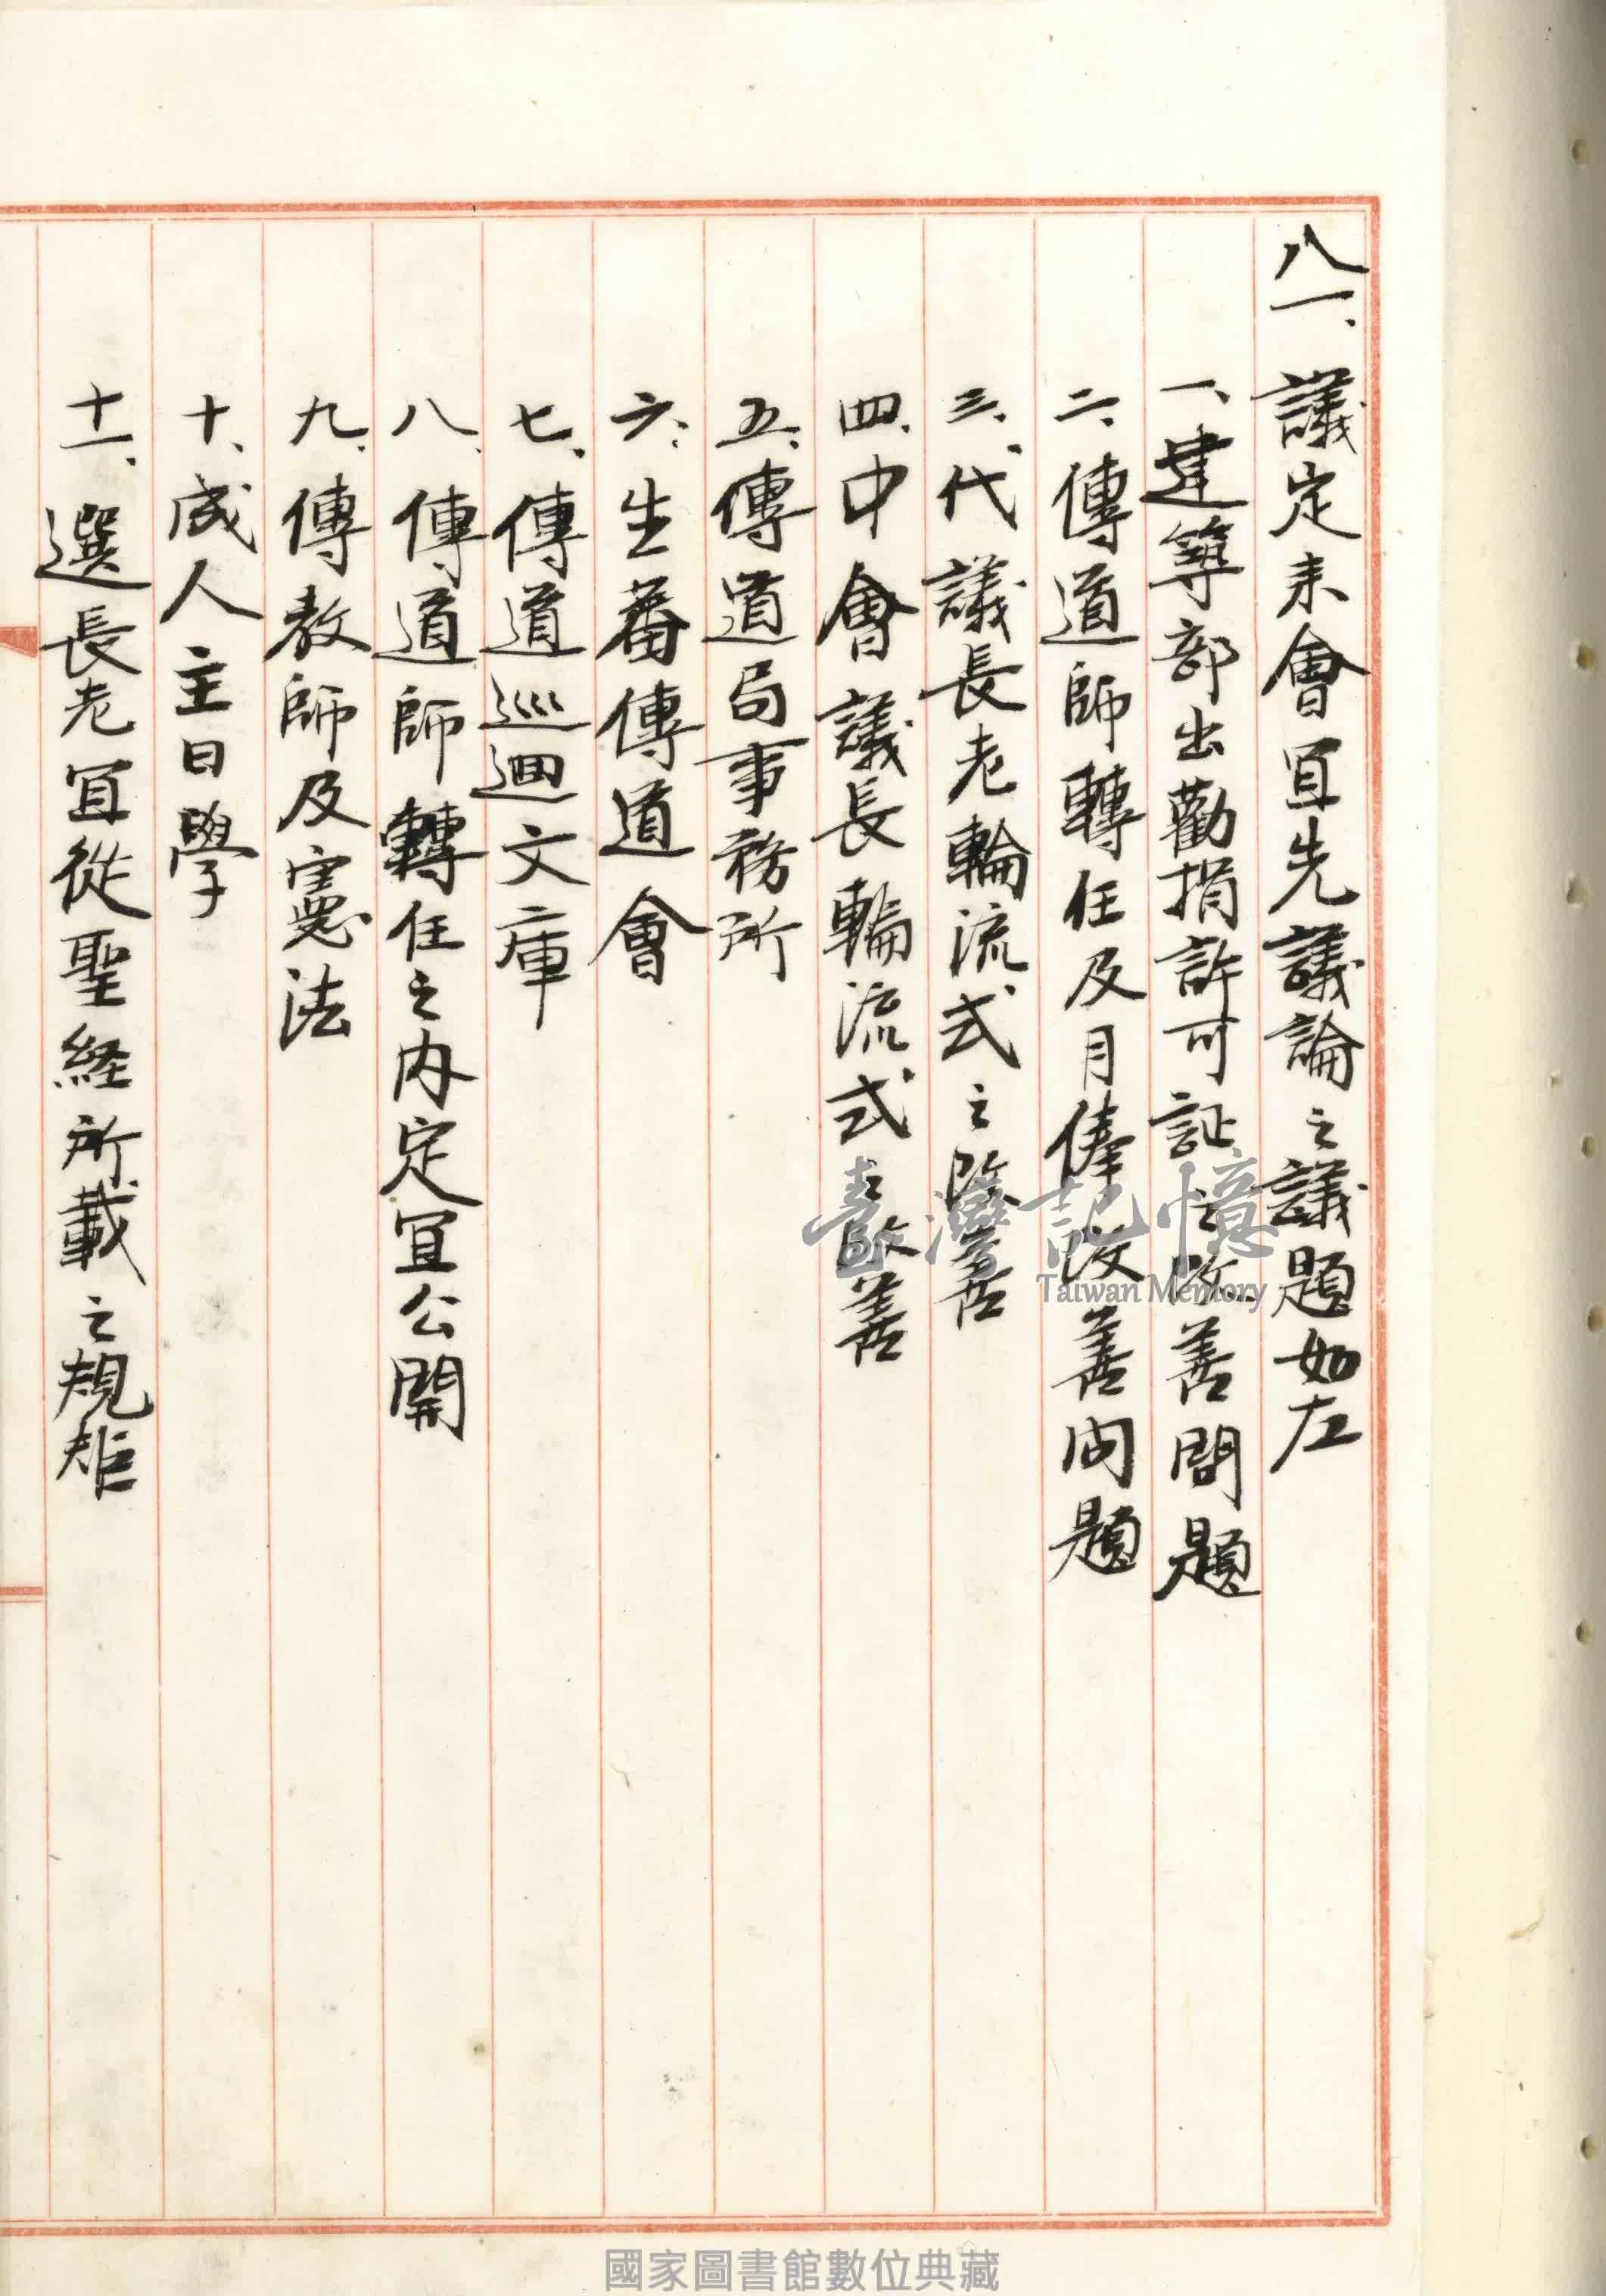 八一、議定未會宜先議論之議題如左
一、建築部出勸捐許可証之改善問題
二、傳道師轉任及月俸改善問題
三、代議長老輪流式之改善
四、中會議長輪流式之改善
五、傳道局事務所
六、生蕃傳道會
七、傳道巡迴文庫
八、傳道師轉任之内定宜公開
九、傳教師及憲法
十、成人主日學
十一、選長老宜從聖経所載之規矩
臺灣記憶
Taiwan Memory
國家圖書館數位典藏